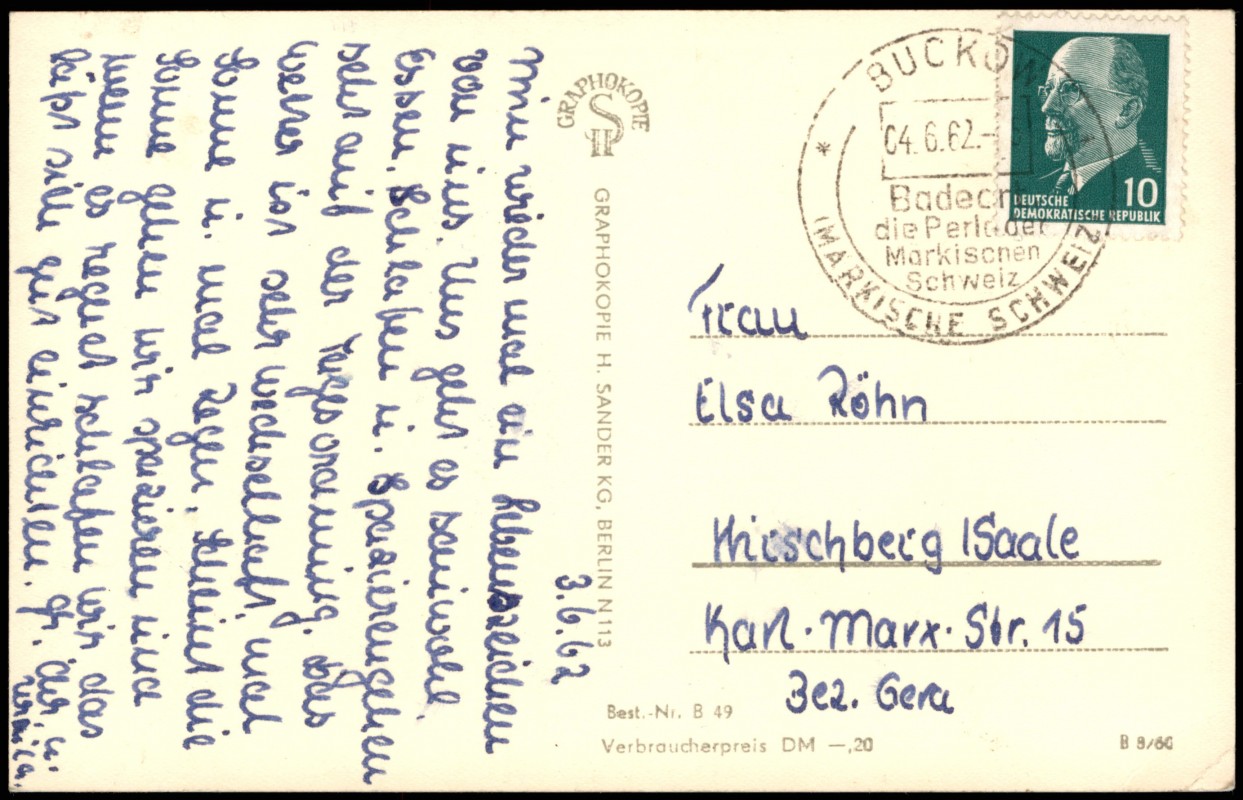 3.6.62
Nun wieder mal ein Lebenszeichen
von uns. Uns geht es sauwohl.
Essen, Schlafen u. Spazierengehen
steht auf der Tagesordnung. Das
Wetter ist sehr wechselhaft, mal
Sonne u. mal Regen. Scheint die
Sonne gehen wir spazieren und
wenn es regnet schlafen wir das
läßt sich gut einrichten. Gr.
GRAPHOKOPIE
GRAPHOKOPIE H. SANDER KG, BERLIN N 113
BUCKOW
04.6.62.-
Badeort
die Perle der
Märkischen
Schweiz
(MÄRKISCHE SCHWEIZ)
DEUTSCHE
DEMOKRATISCHE REPUBLIK
10
Frau
Elsa Röhn
Hirschberg /Saale
Karl-Marx-Str. 15
Bez. Gera
Best.-Nr. B 49
Verbraucherpreis DM —,20
B 9/60